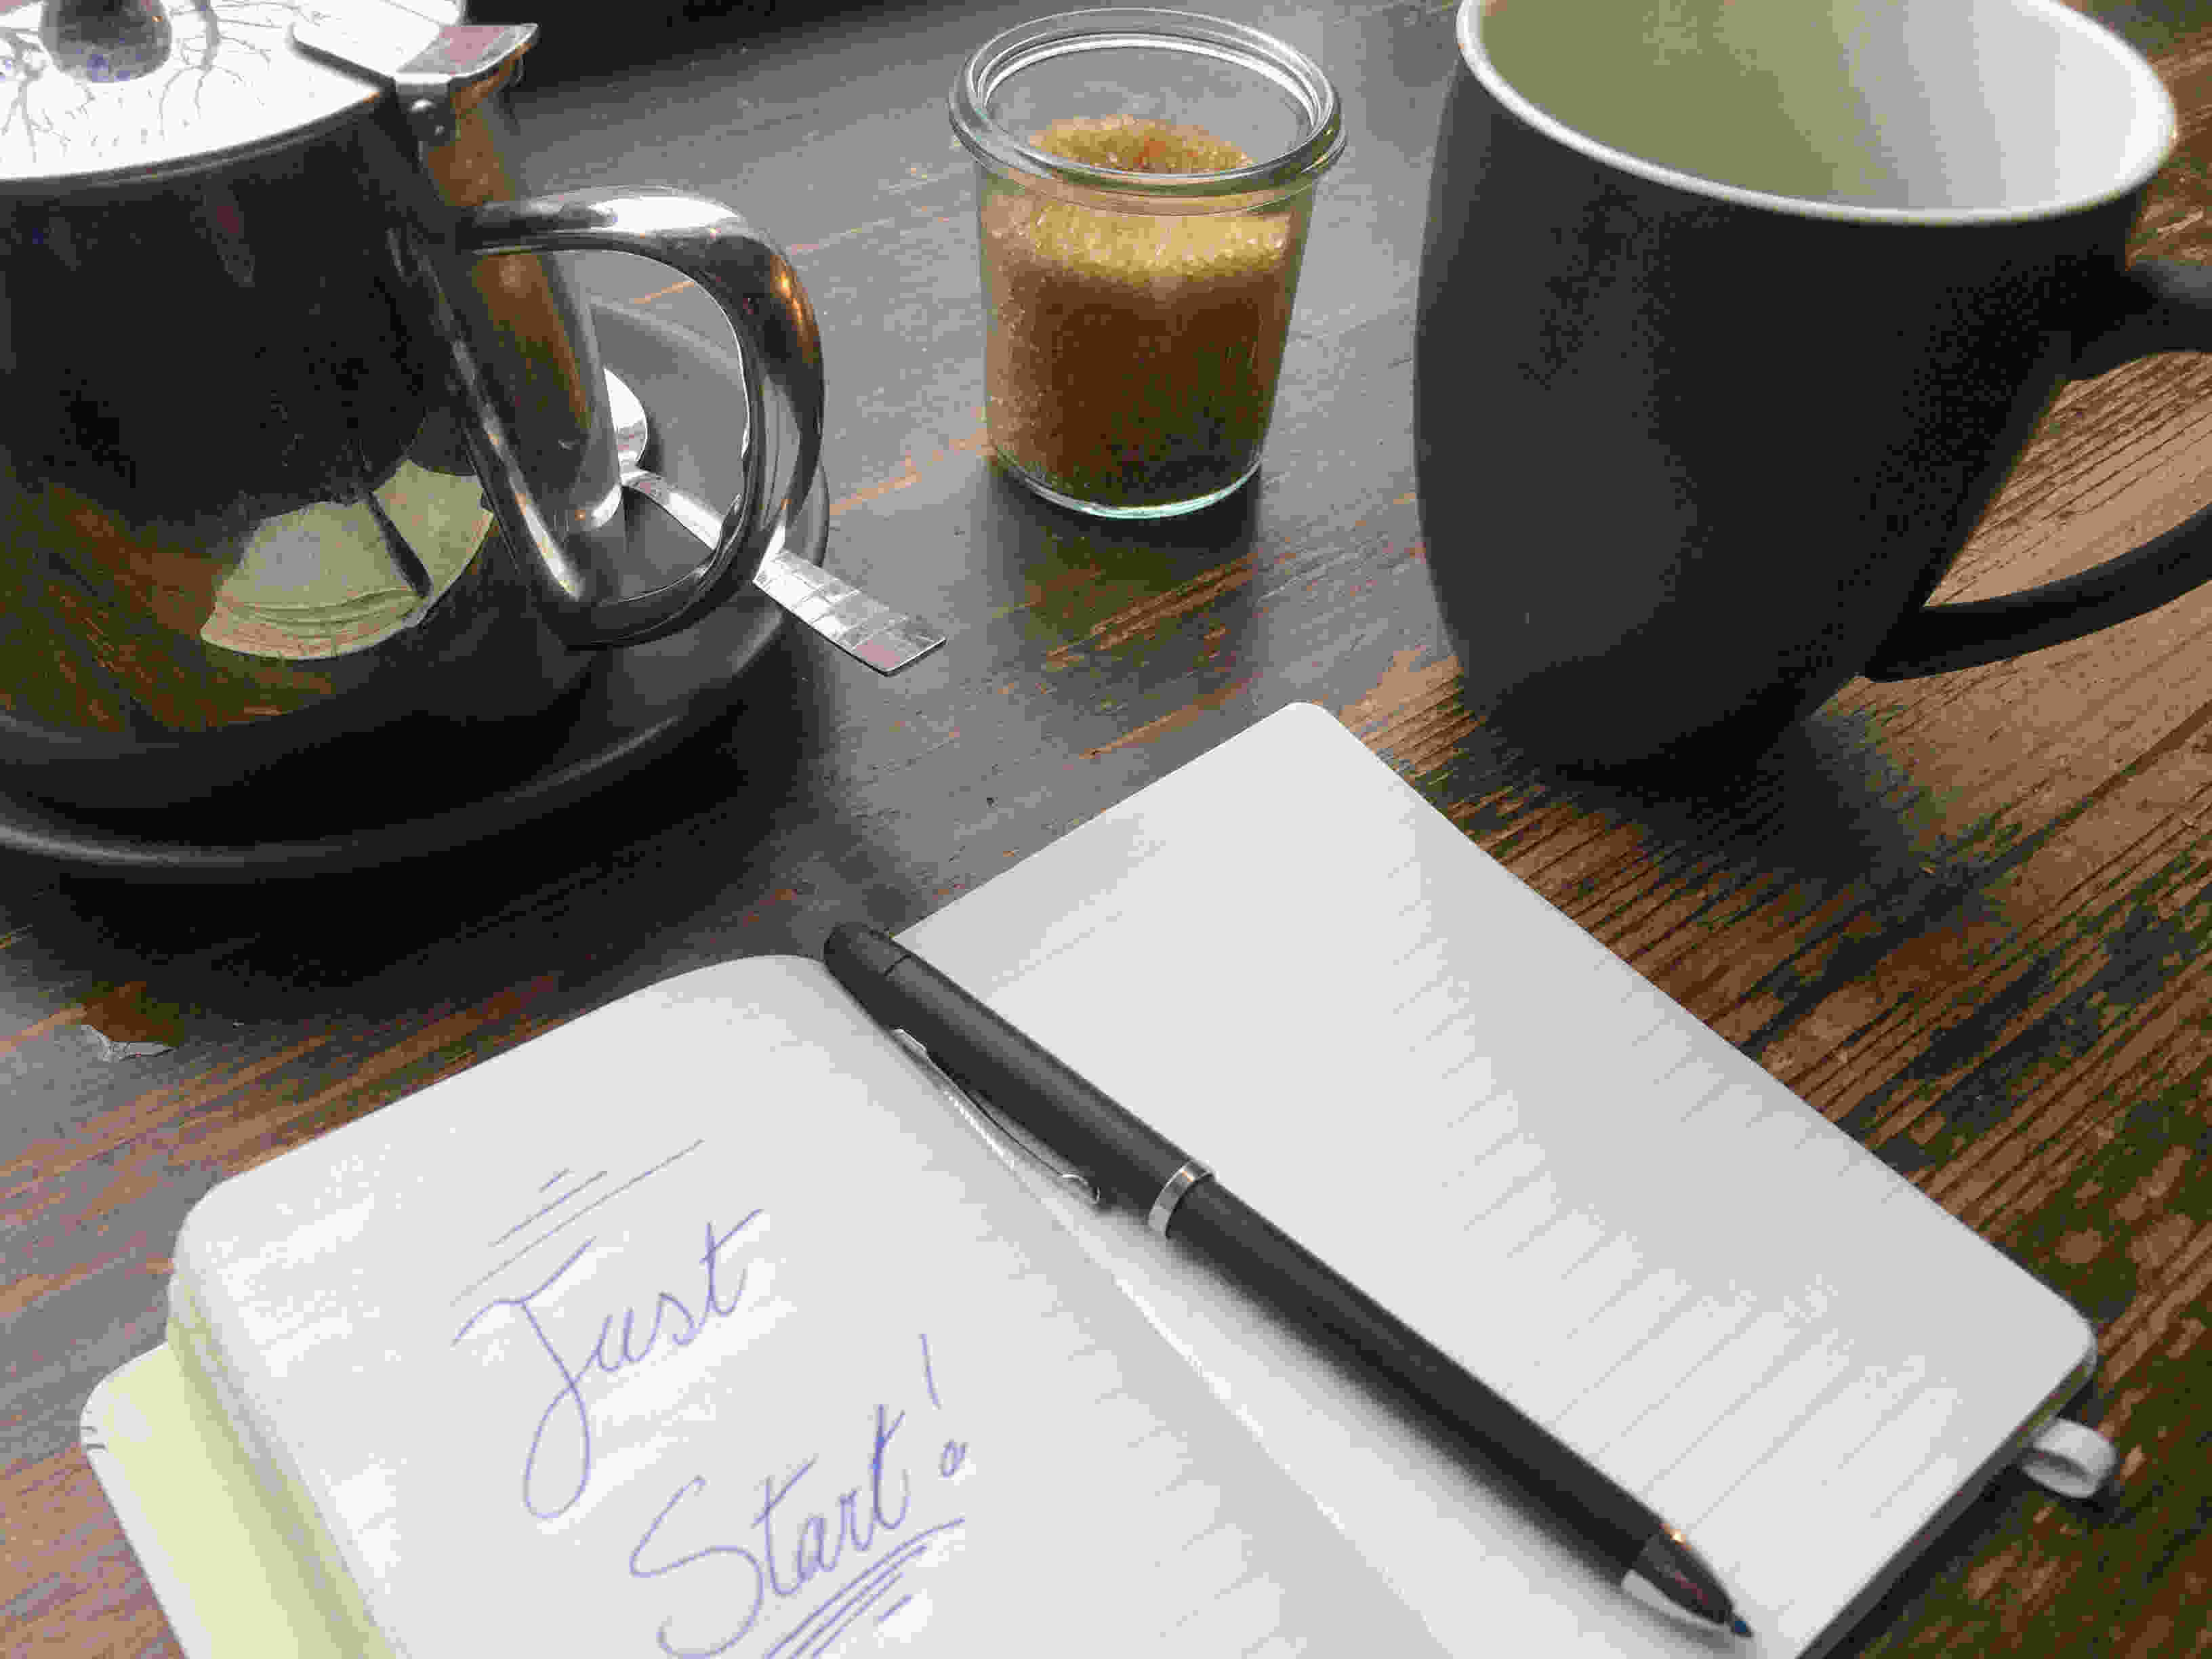 Just
Start!